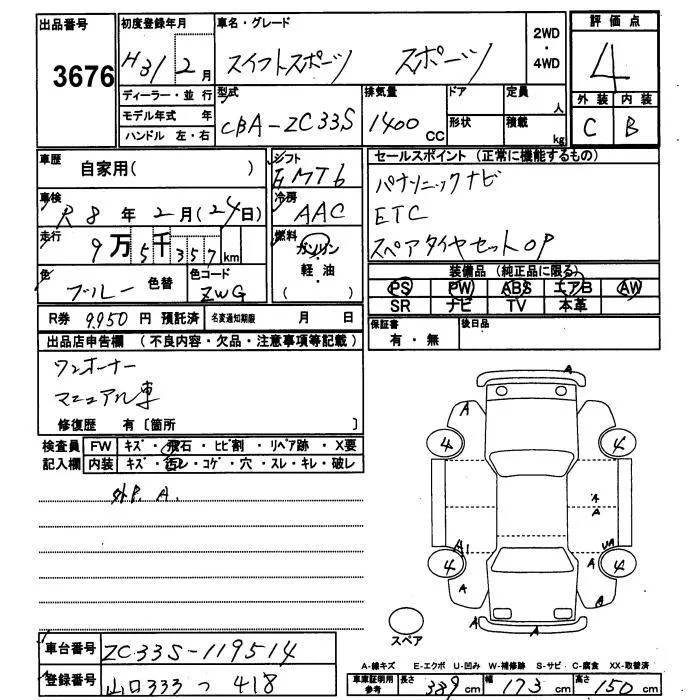 出品番号 3676
初度登録年月 H31 2月
車名・グレード スイフトスポーツ スポーツ
2WD・4WD
評価点 4
ディーラー・並行
モデル年式 年
ハンドル 左・右
型式 CBA-ZC33S
排気量 1400 CC
ドア 形状
定員 人
積載 kg
外装 内装
C B
車歴 自家用( )
シフト F MT6
車検 R8年2月(24日)
冷房 AAC
走行 9万5千357km
燃料 ガソリン・軽・油 ( )
色 ブルー 色替
色コード ZWG
セールスポイント (正常に機能するもの)
パナソニックナビ
ETC
スペアタイヤセットOP
装備品 (純正品に限る)
PS PW ABS エアB AW
SR ナビ TV 本革
R券 9,950円 預託済 名変通知期限 月 日
保証書 有・無
後日品
出品店申告欄 (不良内容・欠品・注意事項等記載)
ワンオーナー
マニュアル車
修復歴 有〔箇所 〕
検査員 FW キズ・飛石・ヒビ割・リペア跡・X要
記入欄 内装 キズ・汚レ・コゲ・穴・スレ・キレ・破レ
外P. A.
A
A A
4 4
A
A
A1 UA
4 4
A
A A
A
スペア
車台番号 ZC33S-119514
登録番号 山口333 つ 418
A-線キズ E-エクボ U-凹み W-補修跡 S-サビ C-腐食 XX-取替済
車庫証明用参考 長さ 389cm 幅 173cm 高さ 150cm